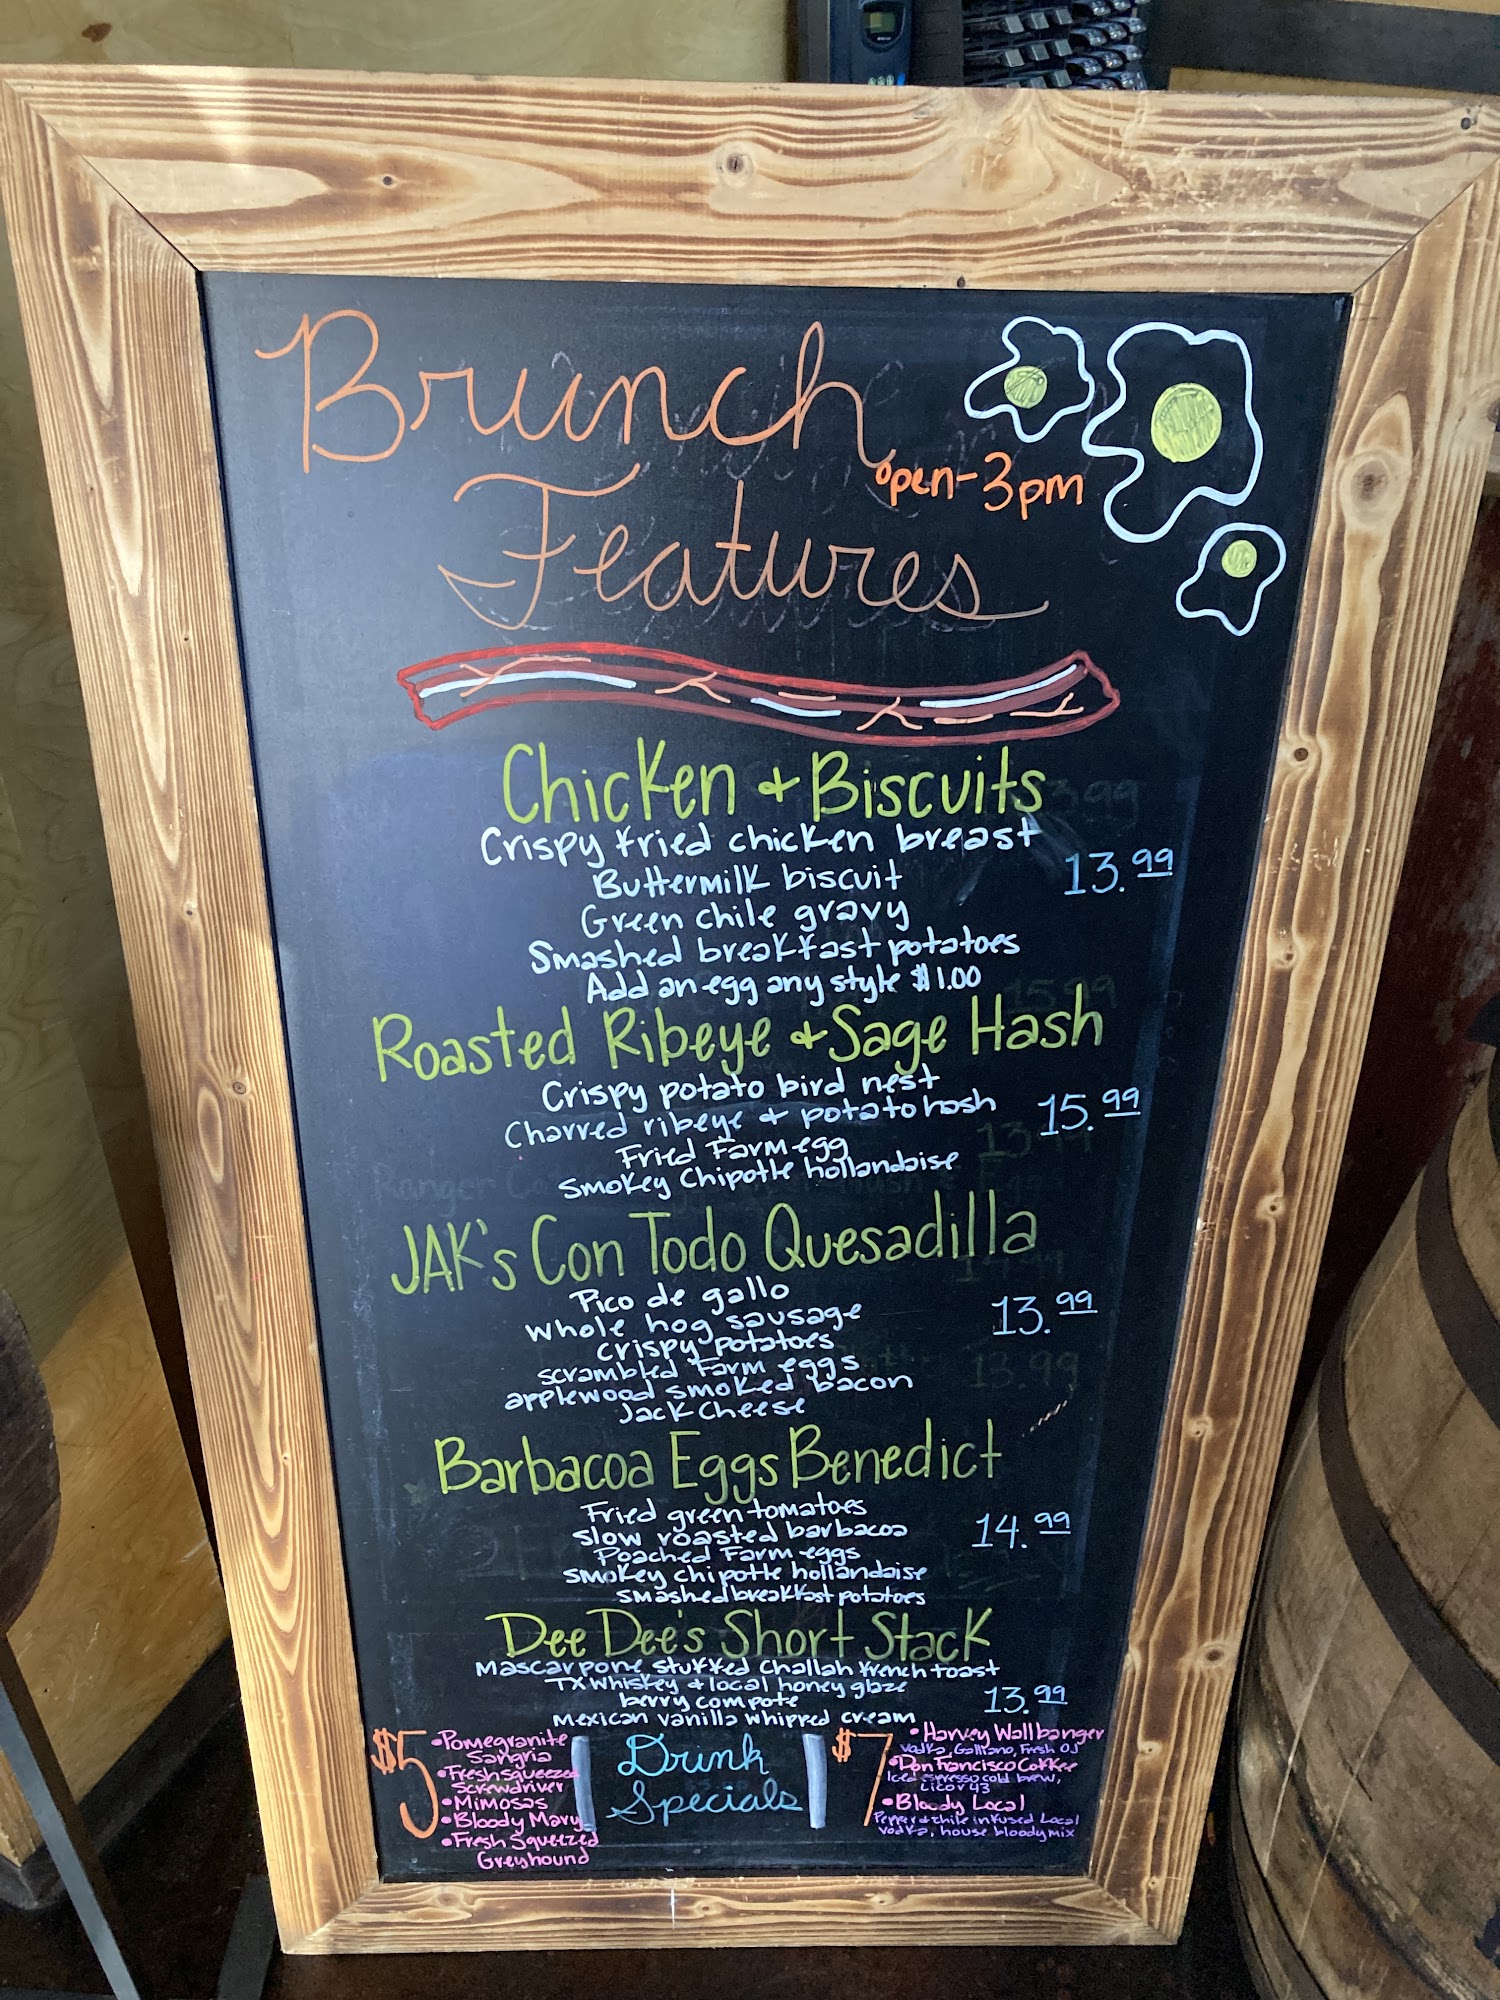 Brunch
open-3pm
Features
Chicken + Biscuits
Crispy fried chicken breast
Buttermilk biscuit
13.99
Green chile gravy
Smashed breakfast potatoes
Add an egg any style $1.00
Roasted Ribeye + Sage Hash
Crispy potato bird nest
Charred ribeye + potato hash
15.99
Fried Farm egg
Smokey Chipotle hollandaise
JAK's Con Todo Quesadilla
Pico de gallo
whole hog sausage
13.99
crispy potatoes
scrambled Farm eggs
applewood smoked bacon
Jack Cheese
Barbacoa Eggs Benedict
Fried green tomatoes
slow roasted barbacoa
14.99
Poached Farm eggs
smokey chipotle hollandaise
smashed breakfast potatoes
Dee Dee's Short Stack
Mascarpone stuffed Challah french toast
TX Whiskey + local honey glaze
berry compote
13.99
Mexican vanilla whipped cream
$5
•Pomegranite
Sangria
•Fresh Squeezed
Screwdriver
•Mimosas
•Bloody Mary
•Fresh Squeezed
Greyhound
Drink
Specials
$7
•Harvey Wallbanger
Vodka, Galliano, Fresh OJ
•Don Francisco Coffee
Iced espresso cold brew,
Licor 43
•Bloody Local
Pepper + chile infused Local
vodka, house bloody mix